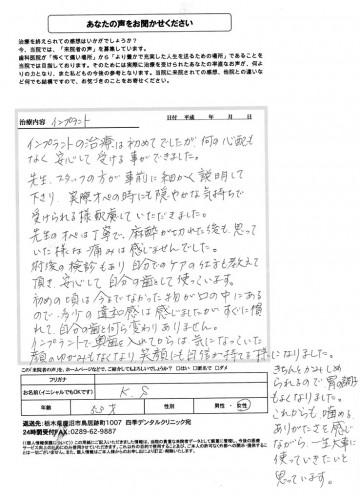 あなたの声をお聞かせください
治療を終えられての感想はいかがでしょうか？
今、当院では、「来院者の声」を募集しています。
歯科医院が「怖くて痛い場所」から「より豊かで充実した人生を送るための場所」であることを
当院では目指しております。そのためには実際に治療を受けられたあなたの率直なお声が、何よ
りの力となり、また私どもの今後の参考となります。当院に来院されての感想、他院との違いな
ど何でも結構ですので、お気づきのことをお寄せください。
治療内容 インプラント 日付 平成 年 月 日
インプラントの治療は初めてでしたが何の心配も
なく安心して受ける事ができました。
先生、スタッフの方が事前に細かく説明して
下さり、実際オペの時にも穏やかな気持ちで
受けられる様配慮していただきました。
先生のオペは丁寧で、麻酔がきれた後も思って
いた様な痛みは感じませんでした。
術後の検診もあり自分でのケアの仕方も教えて
頂き、安心して自分の歯として使っています。
初めの頃は今までなかった物が口の中にある
ので多少の違和感は感じましたがすぐに慣
れて、自分の歯と何ら変わりありません。
インプラントで奥歯を入れてからは気になっていた
顔のゆがみもなくなり笑顔にも自信が持てる様になりました。
きちんとかみしめ
られるので胃の調子
もよくなりました。
これからも噛める
ありがたさを感じ
ながら、一生大事に
使っていきたいと
思っています。
この「来院者の声」を、ホームページなどで、ご紹介してもよろしいでしょうか？ □はい □匿名で □ダメ
フリガナ
お名前(イニシャルでもOKです) K.S
年齢 才 性別 男性・女性
返送先：栃木県鹿沼市鳥居跡町1007 四季デンタルクリニック宛
24時間受付FAX：0289-62-9887